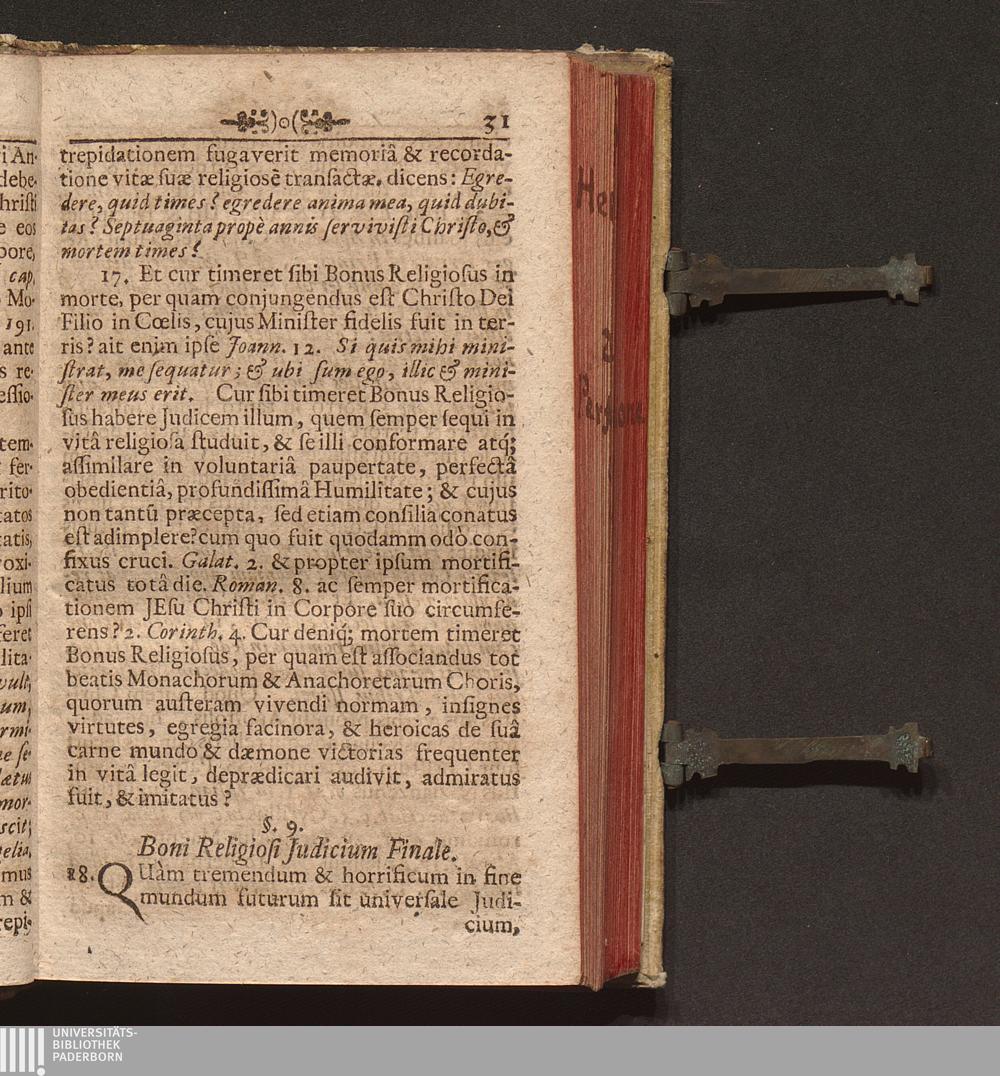 )o( 31
trepidationem fugaverit memoriâ & recorda-
tione vitæ ſuæ religiosè tranſactæ, dicens: Egre-
dere, quid times? egredere anima mea, quid dubi-
tas? Septuaginta propè annis ſerviviſti Chriſto, &
mortem times?
17. Et cur timeret ſibi Bonus Religioſus in
morte, per quam conjungendus eſt Chriſto Dei
Filio in Cœlis, cujus Miniſter fidelis fuit in ter-
ris? ait enim ipſe Joann. 12. Si quis mihi mini-
ſtrat, me ſequatur; & ubi ſum ego, illic & mini-
ſter meus erit. Cur ſibi timeret Bonus Religio-
ſus habere Judicem illum, quem ſemper ſequi in
vitâ religioſâ ſtuduit, & ſe illi conformare atq́;
aſſimilare in voluntariâ paupertate, perfectâ
obedientiâ, profundiſſimâ Humilitate; & cujus
non tantũ præcepta, ſed etiam conſilia conatus
eſt adimplere? cum quo fuit quodammodò con-
fixus cruci. Galat. 2. & propter ipſum mortifi-
catus totâ die. Roman. 8. ac ſemper mortifica-
tionem JEſu Chriſti in Corpore ſuo circumfe-
rens? 2. Corinth. 4. Cur deniq́; mortem timeret
Bonus Religioſus, per quam eſt aſſociandus tot
beatis Monachorum & Anachoretarum Choris,
quorum auſteram vivendi normam, inſignes
virtutes, egregia facinora, & heroicas de ſuâ
carne mundo & dæmone victorias frequenter
in vitâ legit, deprædicari audivit, admiratus
fuit, & imitatus?
§. 9.
Boni Religioſi Judicium Finale.
18. QUàm tremendum & horrificum in fine
mundum futurum ſit univerſale Judi-
cium,
i An-
debe-
hriſti
e eos
pore,
cap.
Mo-
191.
ante
s re-
eſſio-
tem-
fer-
rito-
tatos
tatis,
oxi-
lium
ipſi
feret
lita-
vult,
um,
rmi-
ne ſe-
mor-
ſcit;
elia,
mus
m &
repi-
Hei
UNIVERSITÄTS-
BIBLIOTHEK
PADERBORN